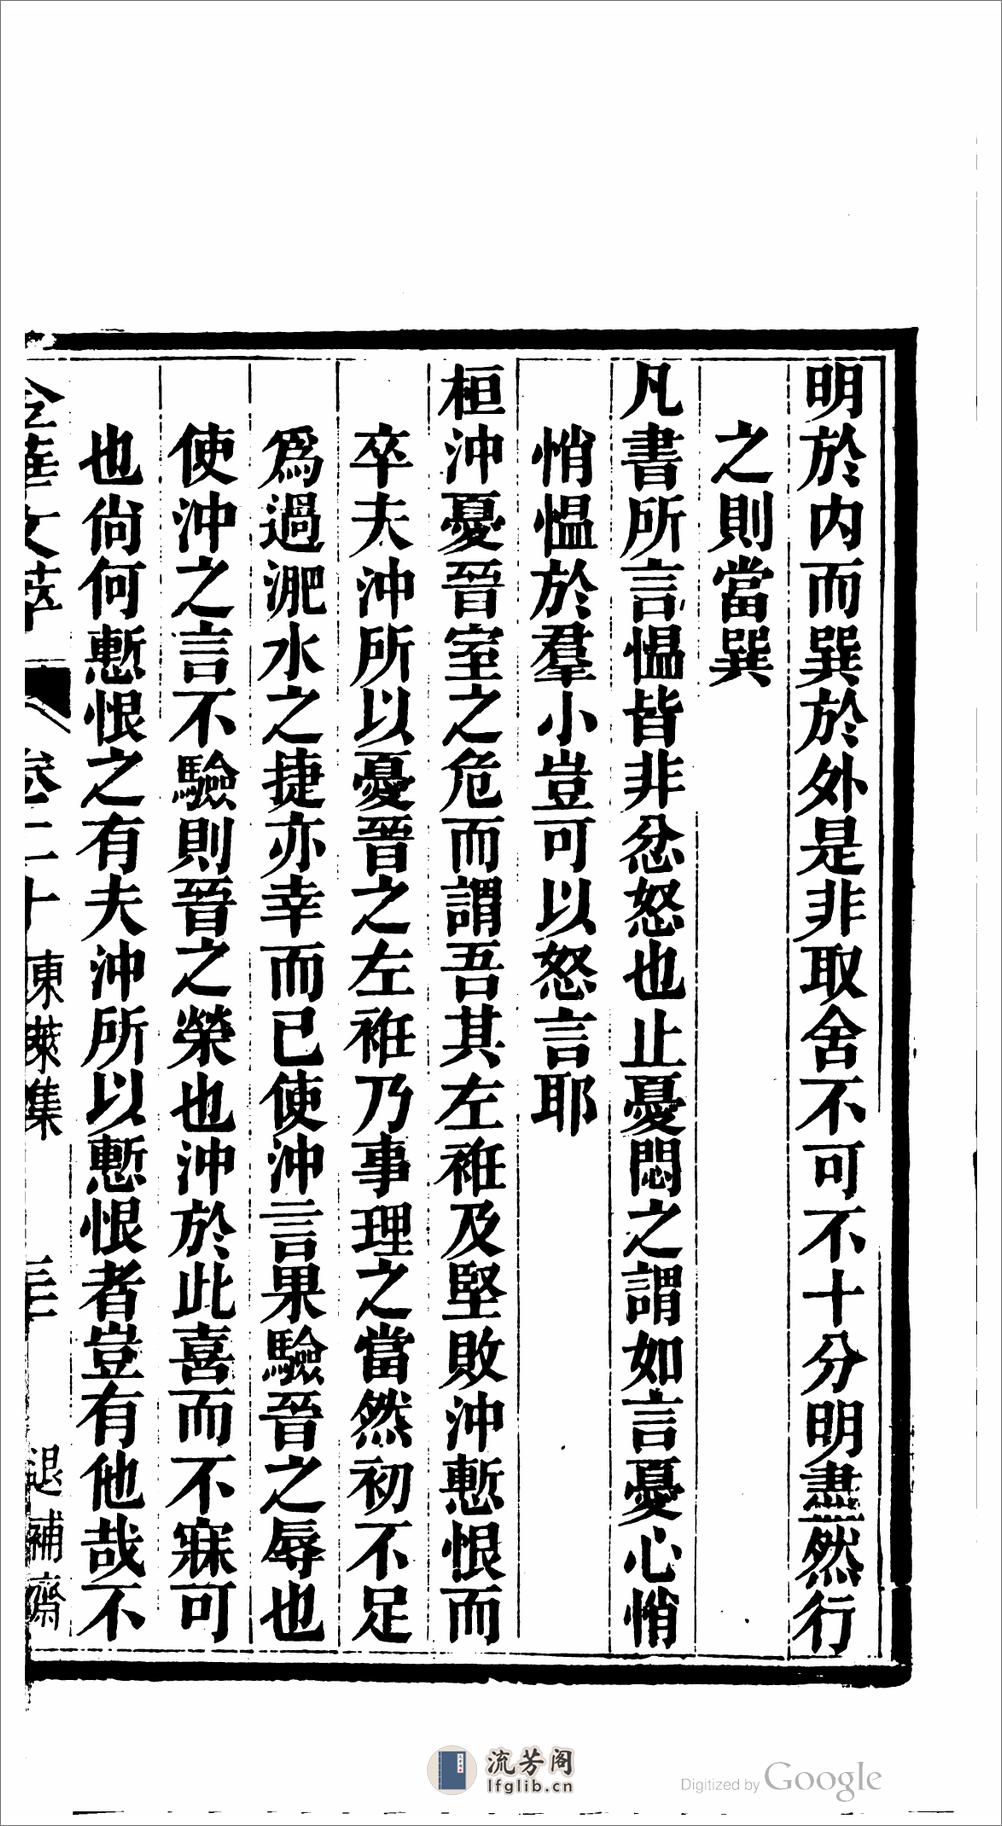 明於内而巽於外是非取舍不可不十分明盡然行
之則當巽
凡書所言愠皆非忿怒也止憂悶之謂如言憂心悄
悄愠於羣小豈可以怒言耶
桓沖憂晉室之危而謂吾其左袵及堅敗沖慙恨而
卒夫沖所以憂晉之左袵乃事理之當然初不足
爲過淝水之捷亦幸而已使沖言果驗晉之辱也
使沖之言不驗則晉之榮也沖於此喜而不寐可
也尙何慙恨之有夫沖所以慙恨者豈有他哉不
金華文萃 卷二十 東萊集 退補齋
流芳阁
lfglib.cn
Digitized by Google